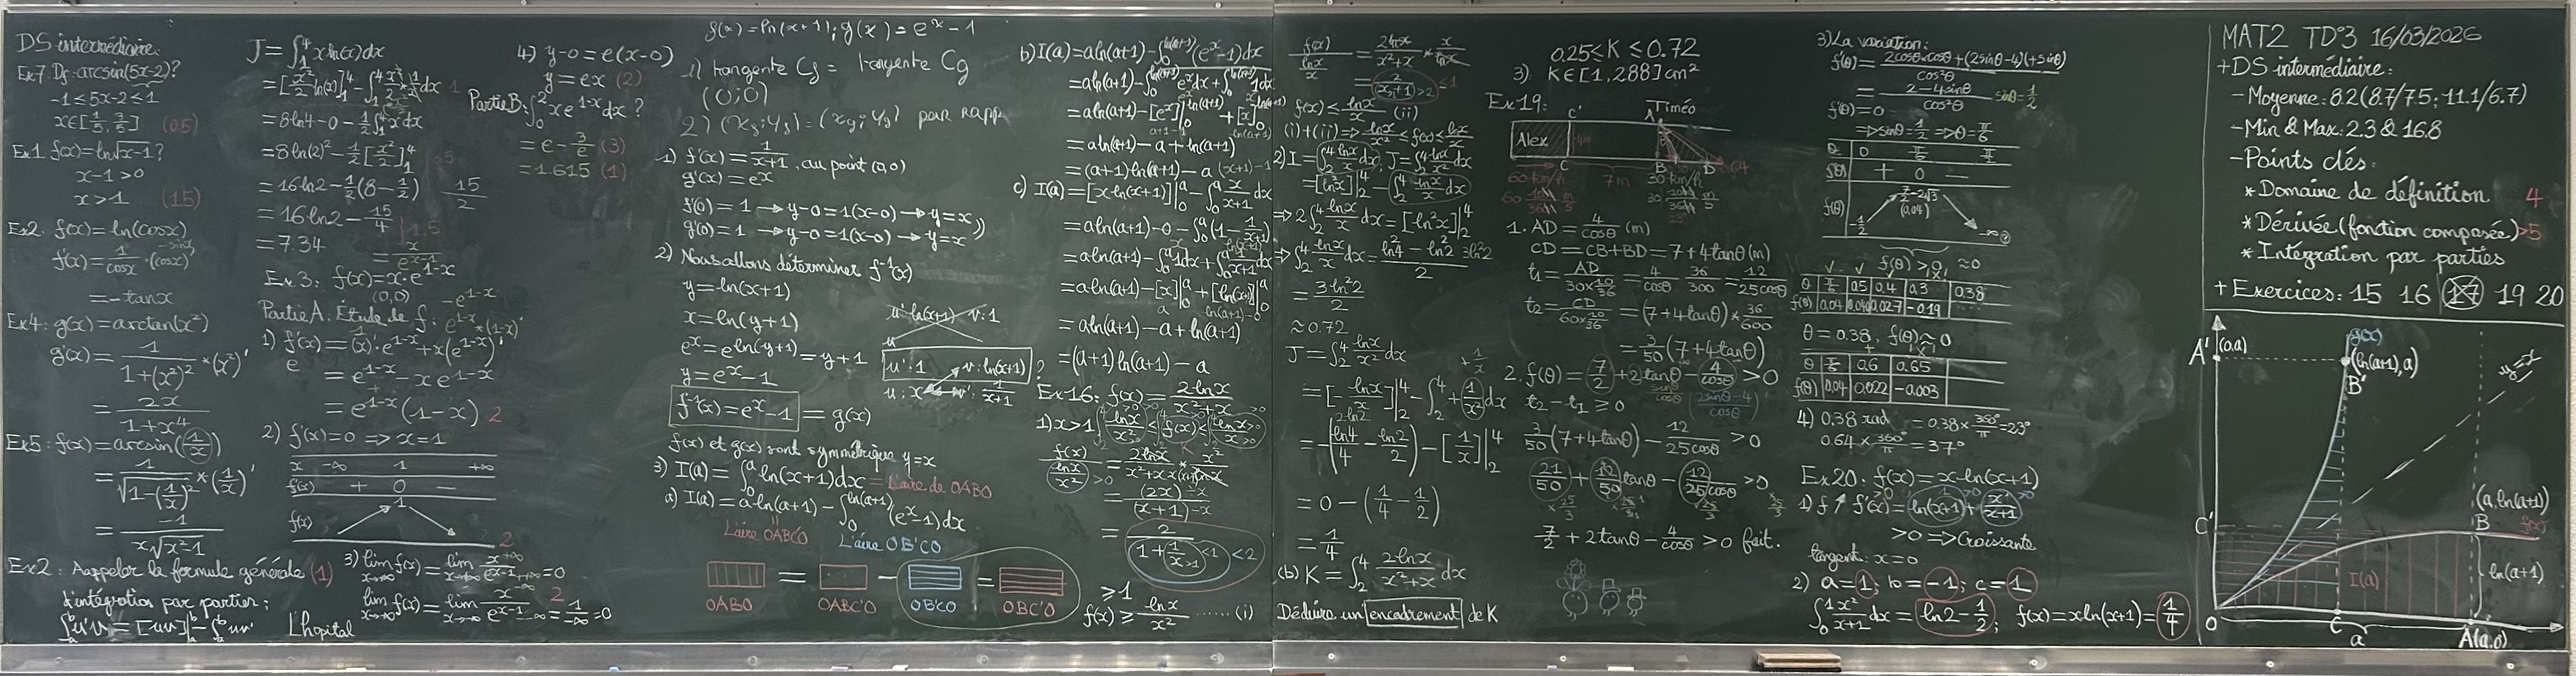 DS intermédiaire:
Ex7: Df: arcsin(5x-2)?
-1 ≤ 5x-2 ≤ 1
x∈[1/5, 3/5] (0.5)
Ex1. f(x)=ln√x-1?
x-1 > 0
x > 1 (1.5)
Ex2. f(x)=ln(cosx)
f'(x)=1/cosx·(cosx)' -sinx
=-tanx
Ex4: g(x)=arctan(x²)
g'(x)=1/(1+(x²)²)*(x²)'
=2x/(1+x⁴)
Ex5: f(x)=arcsin(1/x)
=1/√(1-(1/x)²)*(1/x)'
=-1/(x√(x²-1))
Ex2: Rappeler la formule générale (1)
d'intégration par partier:
∫ₐᵇu'v=[uv]ₐᵇ-∫ₐᵇuv'
J=∫₁⁴xln(x)dx
=[x²/2 ln(x)]₁⁴-∫₁⁴x²/2·1/x dx 1
=8ln4-0-1/2∫₁⁴x dx
=8ln(2)²-1/2[x²/2]₁⁴
=16ln2-1/2(8-1/2) 15/2
=16ln2-15/4
=7.34
=x/e^(x-1)
Ex3: f(x)=x·e^(1-x)
(0,0)
Partie A: Étude de f:
-e^(1-x)
e^(1-x)*(1-x)'
1) f'(x)=(x)'·e^(1-x)+x(e^(1-x))'
=e^(1-x)-xe^(1-x)
=e^(1-x)(1-x) 2
2) f'(x)=0 => x=1
x -∞ 1 +∞
f'(x) + 0 -
f(x) 1
2
3) lim x→+∞ f(x)=lim x→+∞ x/e^(x-1)=0
lim x→-∞ f(x)=lim x→-∞ x/e^(x-1)=1/-∞=0
2
L'hopital
4) y-0=e(x-0)
y=ex (2)
Partie B: ∫₀²xe^(1-x)dx?
=e-3/e (3)
=1.615 (1)
f(x)=ln(x+1); g(x)=eˣ-1
1) tangente Cf = tangente Cg
(0;0)
2) (xf;yf)=(xg;yg) par rapp
1) f'(x)=1/(x+1), au point (0,0)
g'(x)=eˣ
f'(0)=1 → y-0=1(x-0) → y=x
g'(0)=1 → y-0=1(x-0) → y=x
2) Nous allons déterminer f⁻¹(x)
y=ln(x+1)
x=ln(y+1)
eˣ=e^ln(y+1)=y+1
y=eˣ-1
f⁻¹(x)=eˣ-1=g(x)
u':ln(x+1) v:1
u
u':1 v:ln(x+1)
u:x v':1/(x+1)
?
f(x) et g(x) sont symmétrique y=x
3) I(a)=∫₀ᵃln(x+1)dx=L'aire de OABO
a) I(a)=a·ln(a+1)-∫₀^ln(a+1)(eˣ-1)dx
L'aire OABC'O
L'aire OB'CO
OABO = OABC'O - OB'CO = OBC'O
b) I(a)=aln(a+1)-∫₀^ln(a+1)(eˣ-1)dx
=aln(a+1)-∫₀^ln(a+1)eˣdx+∫₀^ln(a+1)1dx
=aln(a+1)-[eˣ]₀^ln(a+1)+[x]₀^ln(a+1)
a+1-1 ln(a+1)
=aln(a+1)-a+ln(a+1)
=(a+1)ln(a+1)-a (x+1)-1
c) I(a)=[x·ln(x+1)]₀ᵃ-∫₀ᵃx/(x+1)dx
=aln(a+1)-0-∫₀ᵃ(1-1/(x+1))
=aln(a+1)-∫₀ᵃ1dx+∫₀ᵃ1/(x+1)dx
=a·ln(a+1)-[x]₀ᵃ+[ln(x+1)]₀ᵃ
a ln(a+1)-0
=aln(a+1)-a+ln(a+1)
=(a+1)ln(a+1)-a
Ex16: f(x)=2lnx/(x²+x)
1) x>1 lnx/x² ≤ f(x) ≤ lnx/x
f(x)/(lnx/x²)=2lnx/(x²+x)*x²/lnx
=(2x)÷x/(x+1)÷x
=2/(1+1/x) <2
≥1
f(x) ≥ lnx/x² ...... (i)
f(x)/(lnx/x)=2lnx/(x²+x)*x/lnx
=2/(x+1) ≤1
f(x)≤lnx/x (ii)
(i)+(ii)=> lnx/x² ≤ f(x) ≤ lnx/x
2) I=∫₂⁴lnx/x dx, J=∫₂⁴lnx/x² dx
=[ln²x]₂⁴-∫₂⁴lnx/x dx
=> 2∫₂⁴lnx/x dx=[ln²x]₂⁴
=> ∫₂⁴lnx/x dx=(ln²4-ln²2)/2 3ln²2
=3ln²2/2
≈0.72
J=∫₂⁴lnx/x² dx
+1/x
=[-lnx/x]₂⁴-∫₂⁴+(1/x²)dx
2ln2
=-(ln4/4-ln2/2)-[1/x]₂⁴
=0-(1/4-1/2)
=1/4
(b) K=∫₂⁴2lnx/(x²+x)dx
Déduire un encadrement de K
0.25≤K≤0.72
3): K∈[1,288]cm²
Ex19:
C' A' Timéo
Alex 4m
C B D 0.64
60km/h 7m 30km/h
1. AD=4/cosθ (m)
CD=CB+BD=7+4tanθ(m)
t₁=AD/(30×10/36)=4/cosθ 36/300=12/25cosθ
t₂=CD/(60×10/36)=(7+4tanθ)*36/600
=3/50(7+4tanθ)
2. f(θ)=7/2+2tanθ-4/cosθ>0
sinθ/cosθ (2sinθ-4)/cosθ
t₂-t₁≥0
3/50(7+4tanθ)-12/25cosθ>0
21/50+12/50tanθ-12/25cosθ>0
×25/3
7/2+2tanθ-4/cosθ>0 fait.
3) La variation:
f'(θ)=2cosθ·cosθ+(2sinθ-4)(+sinθ)/cos²θ
=2-4sinθ/cos²θ sinθ=1/2
f'(θ)=0
=>sinθ=1/2 =>θ=π/6
θ 0 π/6 π/2
f'(θ) + 0 -
f(θ) -1/2 7/2-2√3 (0.04) -∞
f(θ)>0 ≈0
θ π/6 0.5 0.4 0.3 0.38
f(θ) 0.04 0.040 0.027 -0.19
θ=0.38, f(θ)≈0
θ π/6 0.6 0.65
f(θ) 0.04 0.022 -0.003
4) 0.38 rad=0.38×360°/π=23°
0.64×360°/π=37°
Ex20: f(x)=x·ln(x+1)
1) f↗ f'(x)=ln(x+1)+x/(x+1)
>0 =>Croissante
tangente: x=0
2) a=1; b=-1; c=1
∫₀¹x²/(x+1)dx=ln2-1/2; f(x)=xln(x+1)=1/4
MAT2 TD°3 16/03/2026
+DS intermédiaire:
-Moyenne: 8.2(8.7/7.5; 11.1/6.7)
-Min & Max: 2.3 & 16.8
-Points clés:
* Domaine de définition 4
* Dérivée (fonction composée) >5
* Intégration par parties
+ Exercices: 15 16 17 19 20
A' (0,a) g(x) (ln(a+1),a) B' y=x
(a,ln(a+1))
C' B f(x)
I(a) ln(a+1)
O C A(a,0)
a